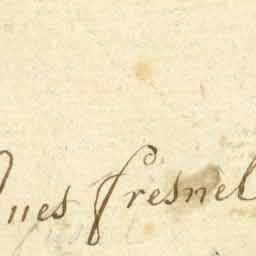 ues fresnel